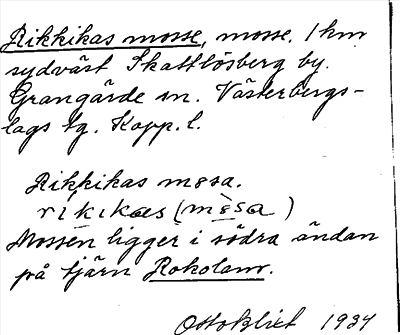 Rikkikas mosse, mosse. 1 km
sydväst Skattlösberg by.
Grangärde sn. Västerbergs-
lags tg. Kopp. l.
Rikkikas møsa.
rikikas (mosa)
Mossen ligger i södra ändan
på tjärn Rokolamr.
Otto Blixt 1934